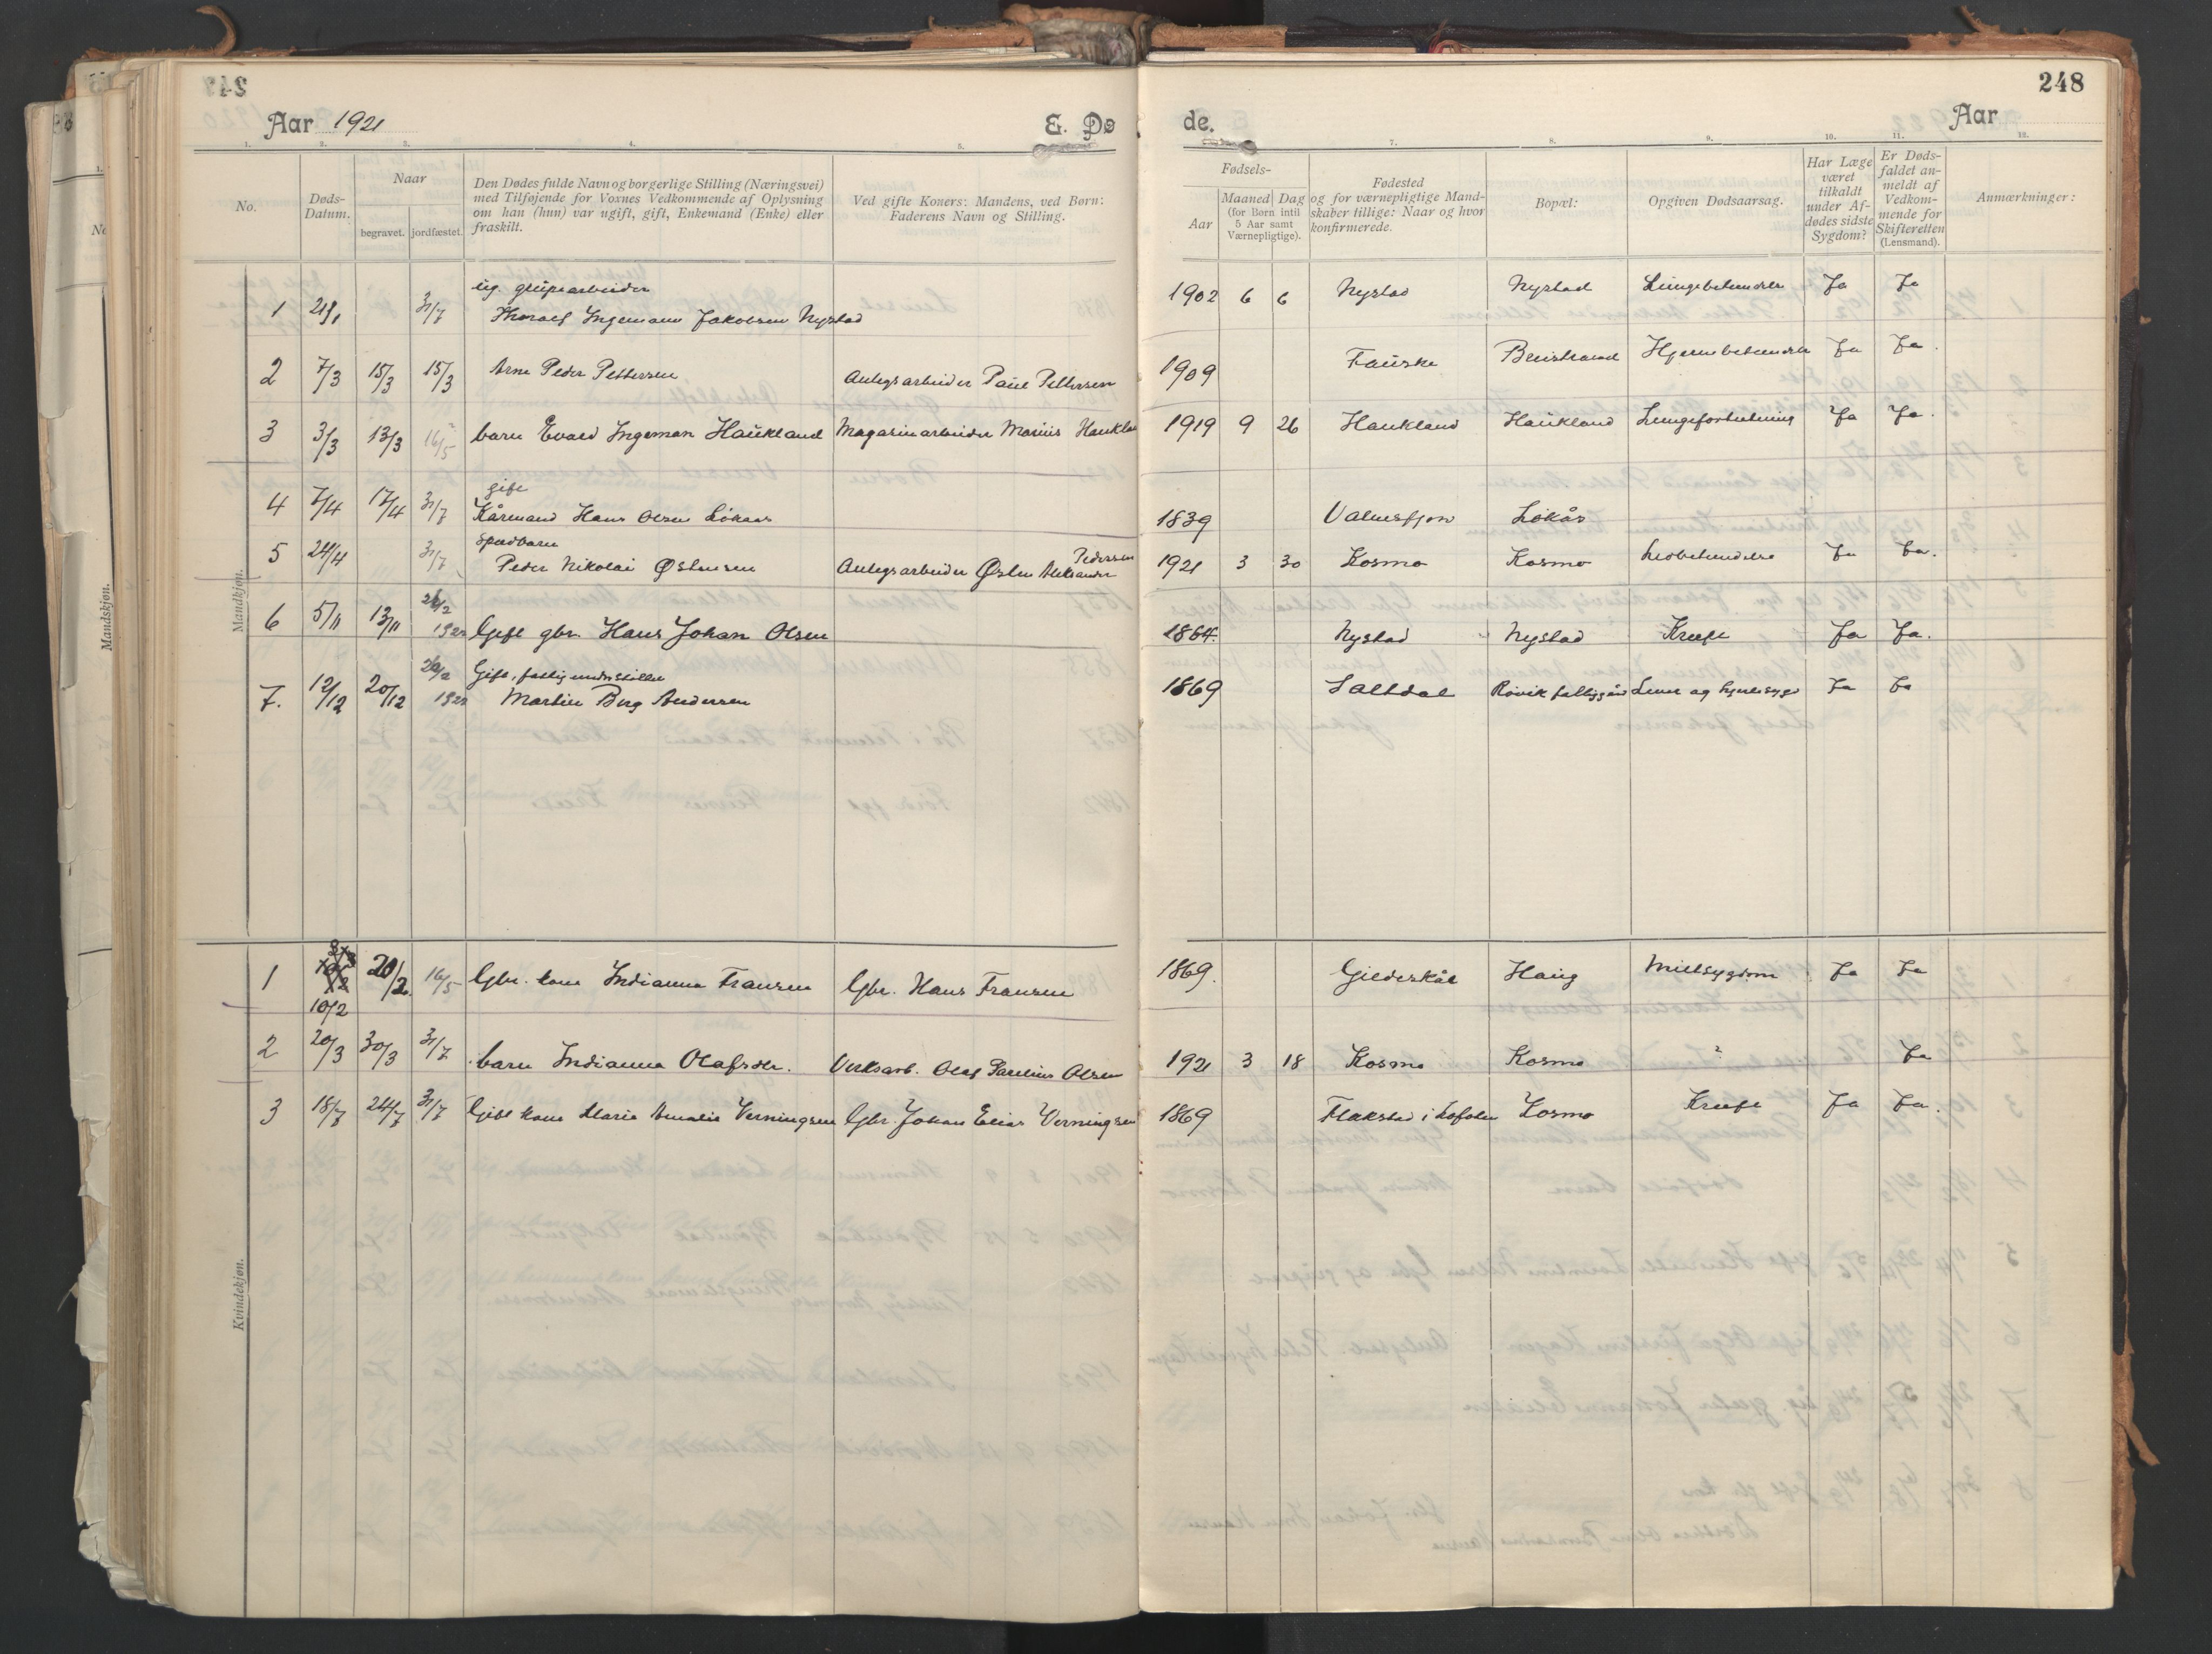 248
Aar 1921
E. Dø
de.
Aar
1. 2. 3. 4. 5. 7. 8. 9. 10. 11. 12.
No.
Døds-
Datum.
Naar
begravet. jordfæstet.
Den Dødes fulde Navn og borgerlige Stilling (Næringsvei)
med Tilføjende for Voxnes Vedkommende af Oplysning
om han (hun) var ugift, gift, Enkemand (Enke) eller
fraskilt.
Ved gifte Koners: Mandens, ved Børn:
Faderens Navn og Stilling.
Fødsels-
Aar
Maaned
(for Børn intil
5 Aar samt
Værnepligtige).
Dag
Fødested
og for værnepligtige Mand-
skaber tillige: Naar og hvor
konfirmerede.
Bopæl:
Opgiven Dødsaarsag.
Har Læge
været
tilkaldt
under Af-
dødes sidste
Sygdom?
Er Døds-
faldet an-
meldt af
Vedkom-
mende for
Skifteretten
(Lensmand).
Anmærkninger:
Mandkjøn.
ug. grubearbeider
1 31/7 Thoralf Ingemann Jakobsen Nystad 1902 6 6 Nystad Nystad Lungebetændelse Ja Ja
2 7/3 15/3 15/3 Arne Peder Pettersen Anlegsarbeider Paul Pettersen 1909 Fauske Hjernebetændelse Ja Ja.
3 3/3 13/3 16/5 barn Evald Ingeman Haukland Magasinarbeider Marius Haukland 1919 9 26 Haukland Haukland Ja Ja.
gift
4 7/4 17/4 31/7 Kårmand Hans Olsen Løkaas 1839 Løkås
Spædbarn
5 24/4 31/7 Peder Nikolai Østensen Anlegsarbeider Østen Aleksander Pedersen 1921 3 30 Kosmo Kosmo Ja Ja.
6 5/11 13/11 26/2 1922 Gift gbr. Hans Johan Olsen 1864. Nystad Nystad Kreft Ja Ja.
Gift, fattigunderstøttet
7. 12/12 20/12 26/2 1922 Martin Berg Andersen 1869 Saltdal Røvik fattiggård Lever og hjertesyge Ja Ja
Kvindekjøn.
1 10/2 20/2. 16/5 Gbr. kone Indianna Fransen Gbr. Hans Fransen 1869. Gildeskål Haug Miltsygdom Ja Ja
2 20/3 30/3 31/7 barn Indianna Olafsdtr. Verksarb. Olaf Paulius Olsen 1921 3 18 Kosmo Kosmo ? Ja
3 18/7 24/7 31/7 Gift kone Maria Amalie Verningsen Gbr. Johan Elias Verningsen 1869 Flakstad i Lofoten Kosmo Kreft Ja Ja.
Mandskjøn.